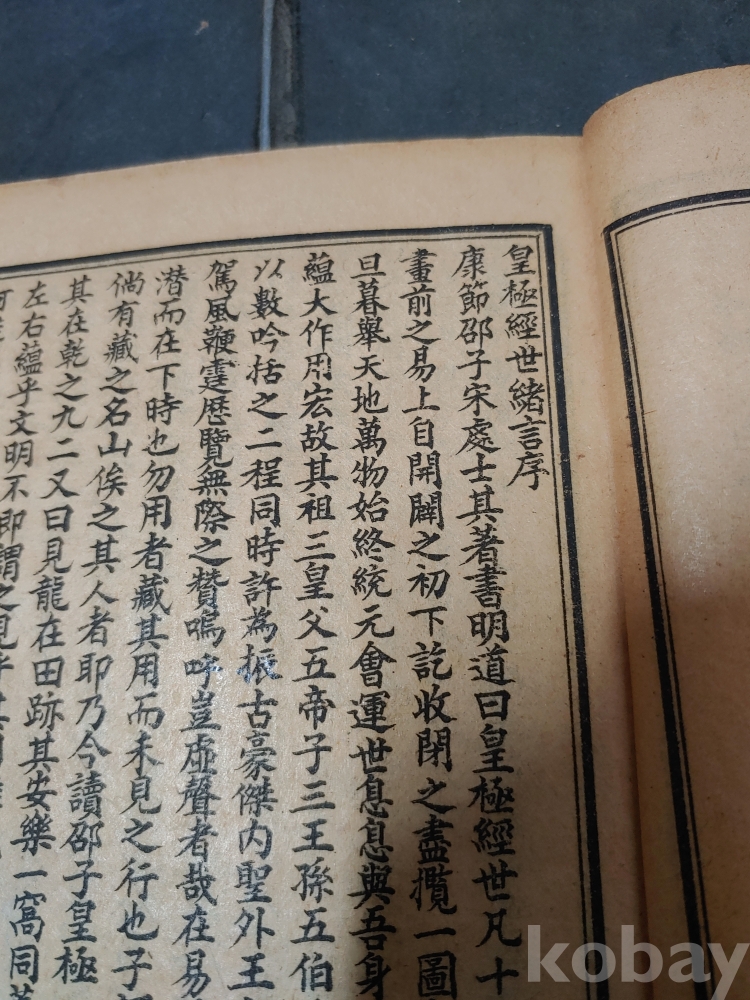 皇極經世緒言序
康節邵子宋處士其著書明道曰皇極經世凡十
畫前之易上自開闢之初下訖收閉之盡攬一圖
旦暮舉天地萬物始終統元會運世息息與吾身
蘊大作用宏故其祖三皇父五帝子三王孫五伯
以數吟括之二程同時許為振古豪傑内聖外王
駕風鞭霆歷覽無際之贊嗚呼豈虛聲者哉在易
潛而在下時也勿用者藏其用而未見之行也子
倘有藏之名山俟之其人者耶乃今讀邵子皇極
其在乾之九二又曰見龍在田跡其安樂一窩同
左右蘊乎文明不即謂之見乎
kobay